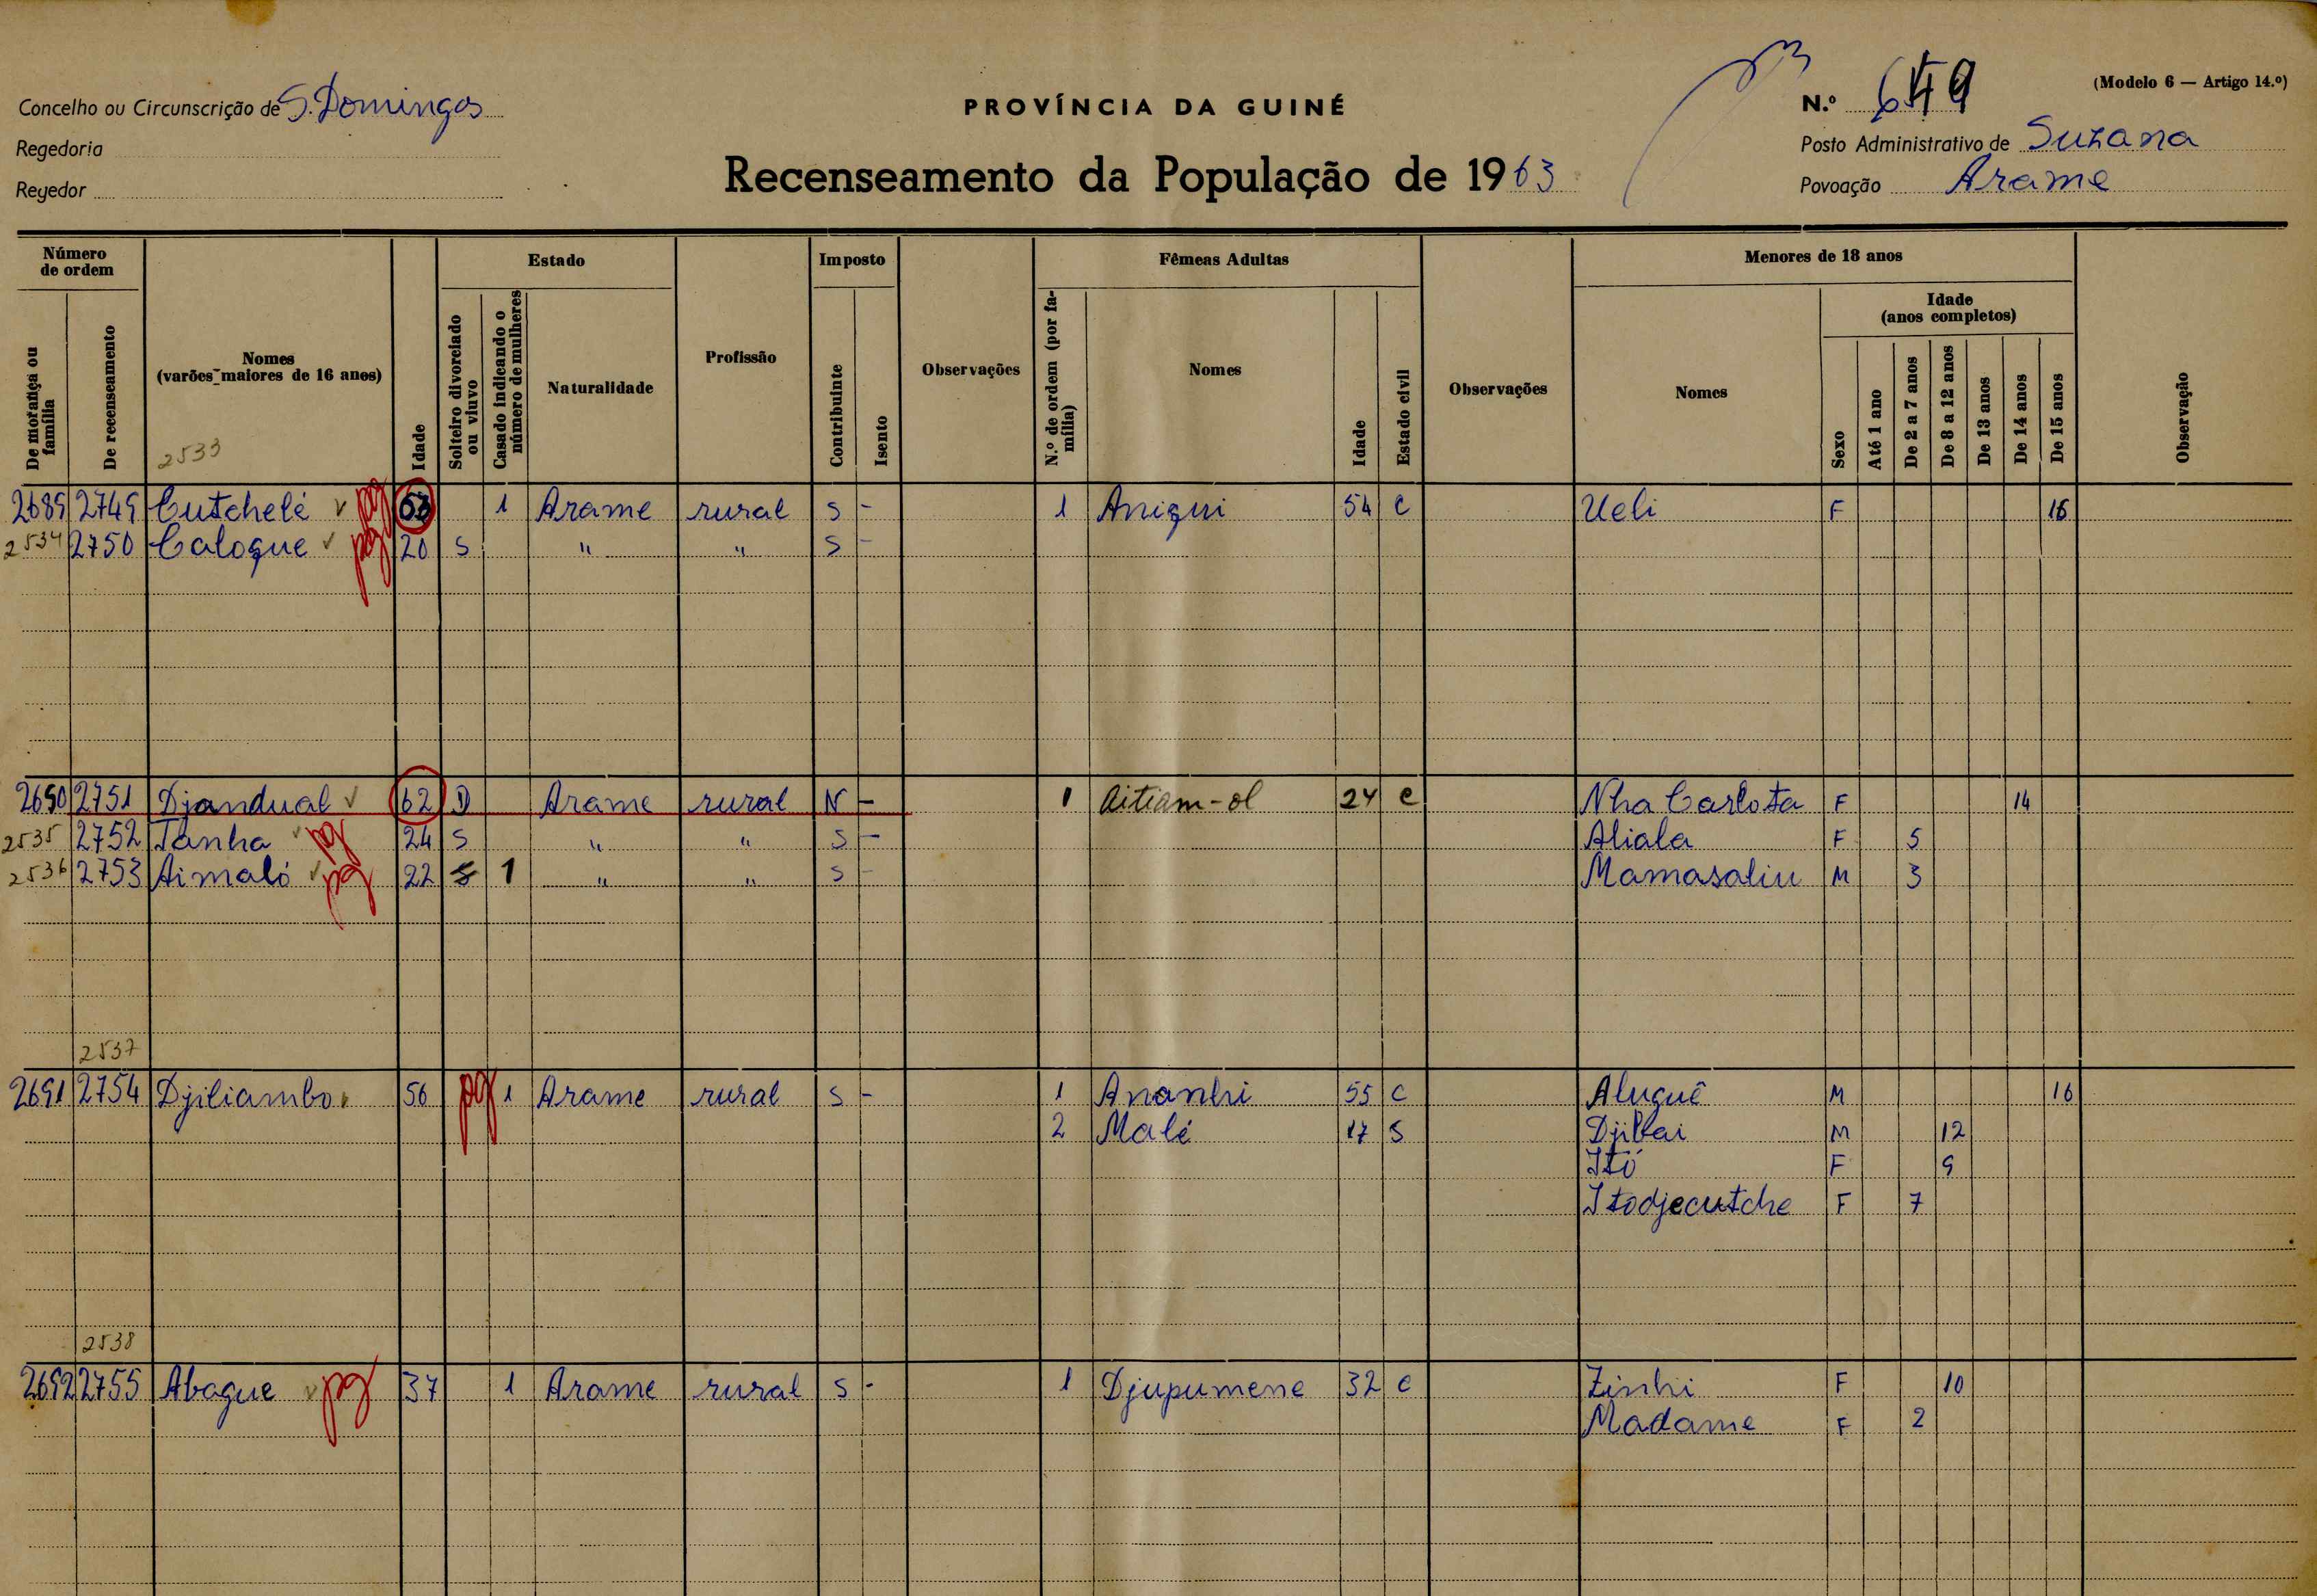 (Modelo 6 — Artigo 14.º)
Concelho ou Circunscrição de S. Domingos
PROVÍNCIA DA GUINÉ
N.º 649
Regedoria
Posto Administrativo de Suzana
Regedor
Recenseamento da População de 1963
Povoação Arame
Número de ordem
Estado
Imposto
Fêmeas Adultas
Menores de 18 anos
Idade (anos completos)
De morança ou família
De recenseamento
Nomes (varões maiores de 16 anos)
Idade
Solteiro divorciado ou viuvo
Casado indicando o número de mulheres
Naturalidade
Profissão
Contribuinte
Isento
Observações
N.º de ordem (por família)
Nomes
Idade
Estado civil
Observações
Nomes
Sexo
Até 1 ano
De 2 a 7 anos
De 8 a 12 anos
De 13 anos
De 14 anos
De 15 anos
Observação
2533
2689 2749 Cutchelé pg 1 Arame rural S - 1 Aniqui 54 C Ueli F 16
2534 2750 Caloque pg 20 S " " S -
2690 2751 Djandual 62 D Arame rural N - 1 Aitiam-ol 24 C Nha Carlota F 14
2535 2752 Tanha pg 24 S " " S - Aliala F 5
2536 2753 Aimaló pg 22 S 1 " " S - Mamasaliu M 3
2537
2691 2754 Djiliambo 56 pg 1 Arame rural S - 1 Ananhi 55 C Aluquê M 16
2 Malé 17 S Djibai M 12
Itó F 9
Itodjecutche F 7
2538
2692 2755 Abaque pg 37 1 Arame rural S - 1 Djupumene 32 C Zinhi F 10
Madame F 2